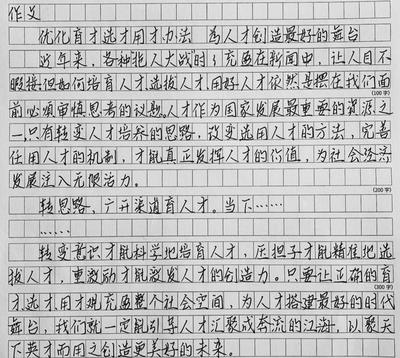 作文
优化育才选才用才办法 为人才创造最好的舞台
近年来，各种“抢人大战”时常充斥在新闻中，让人目不
暇接。但如何培育人才、选拔人才、用好人才依然是摆在我们面
前必须审慎思考的议题。人才作为国家发展最重要的资源之
一，只有转变人才培养的思路，改变选用人才的方法，完善
任用人才的机制，才能真正发挥人才的价值，为社会经济
发展注入无限活力。
(200字)
转思路，广开渠道育人才。当下……
……
(300字)
转变意识才能科学地培育人才，压担子才能精准地选
拔人才，重激励才能激发人才的创造力。只要让正确的育
才、选才、用才观充盈整个社会空间，为人才搭建最好的时代
舞台，我们就一定能引导人才汇聚成奔流的江海，以聚天
下英才而用之创造更美好的未来。